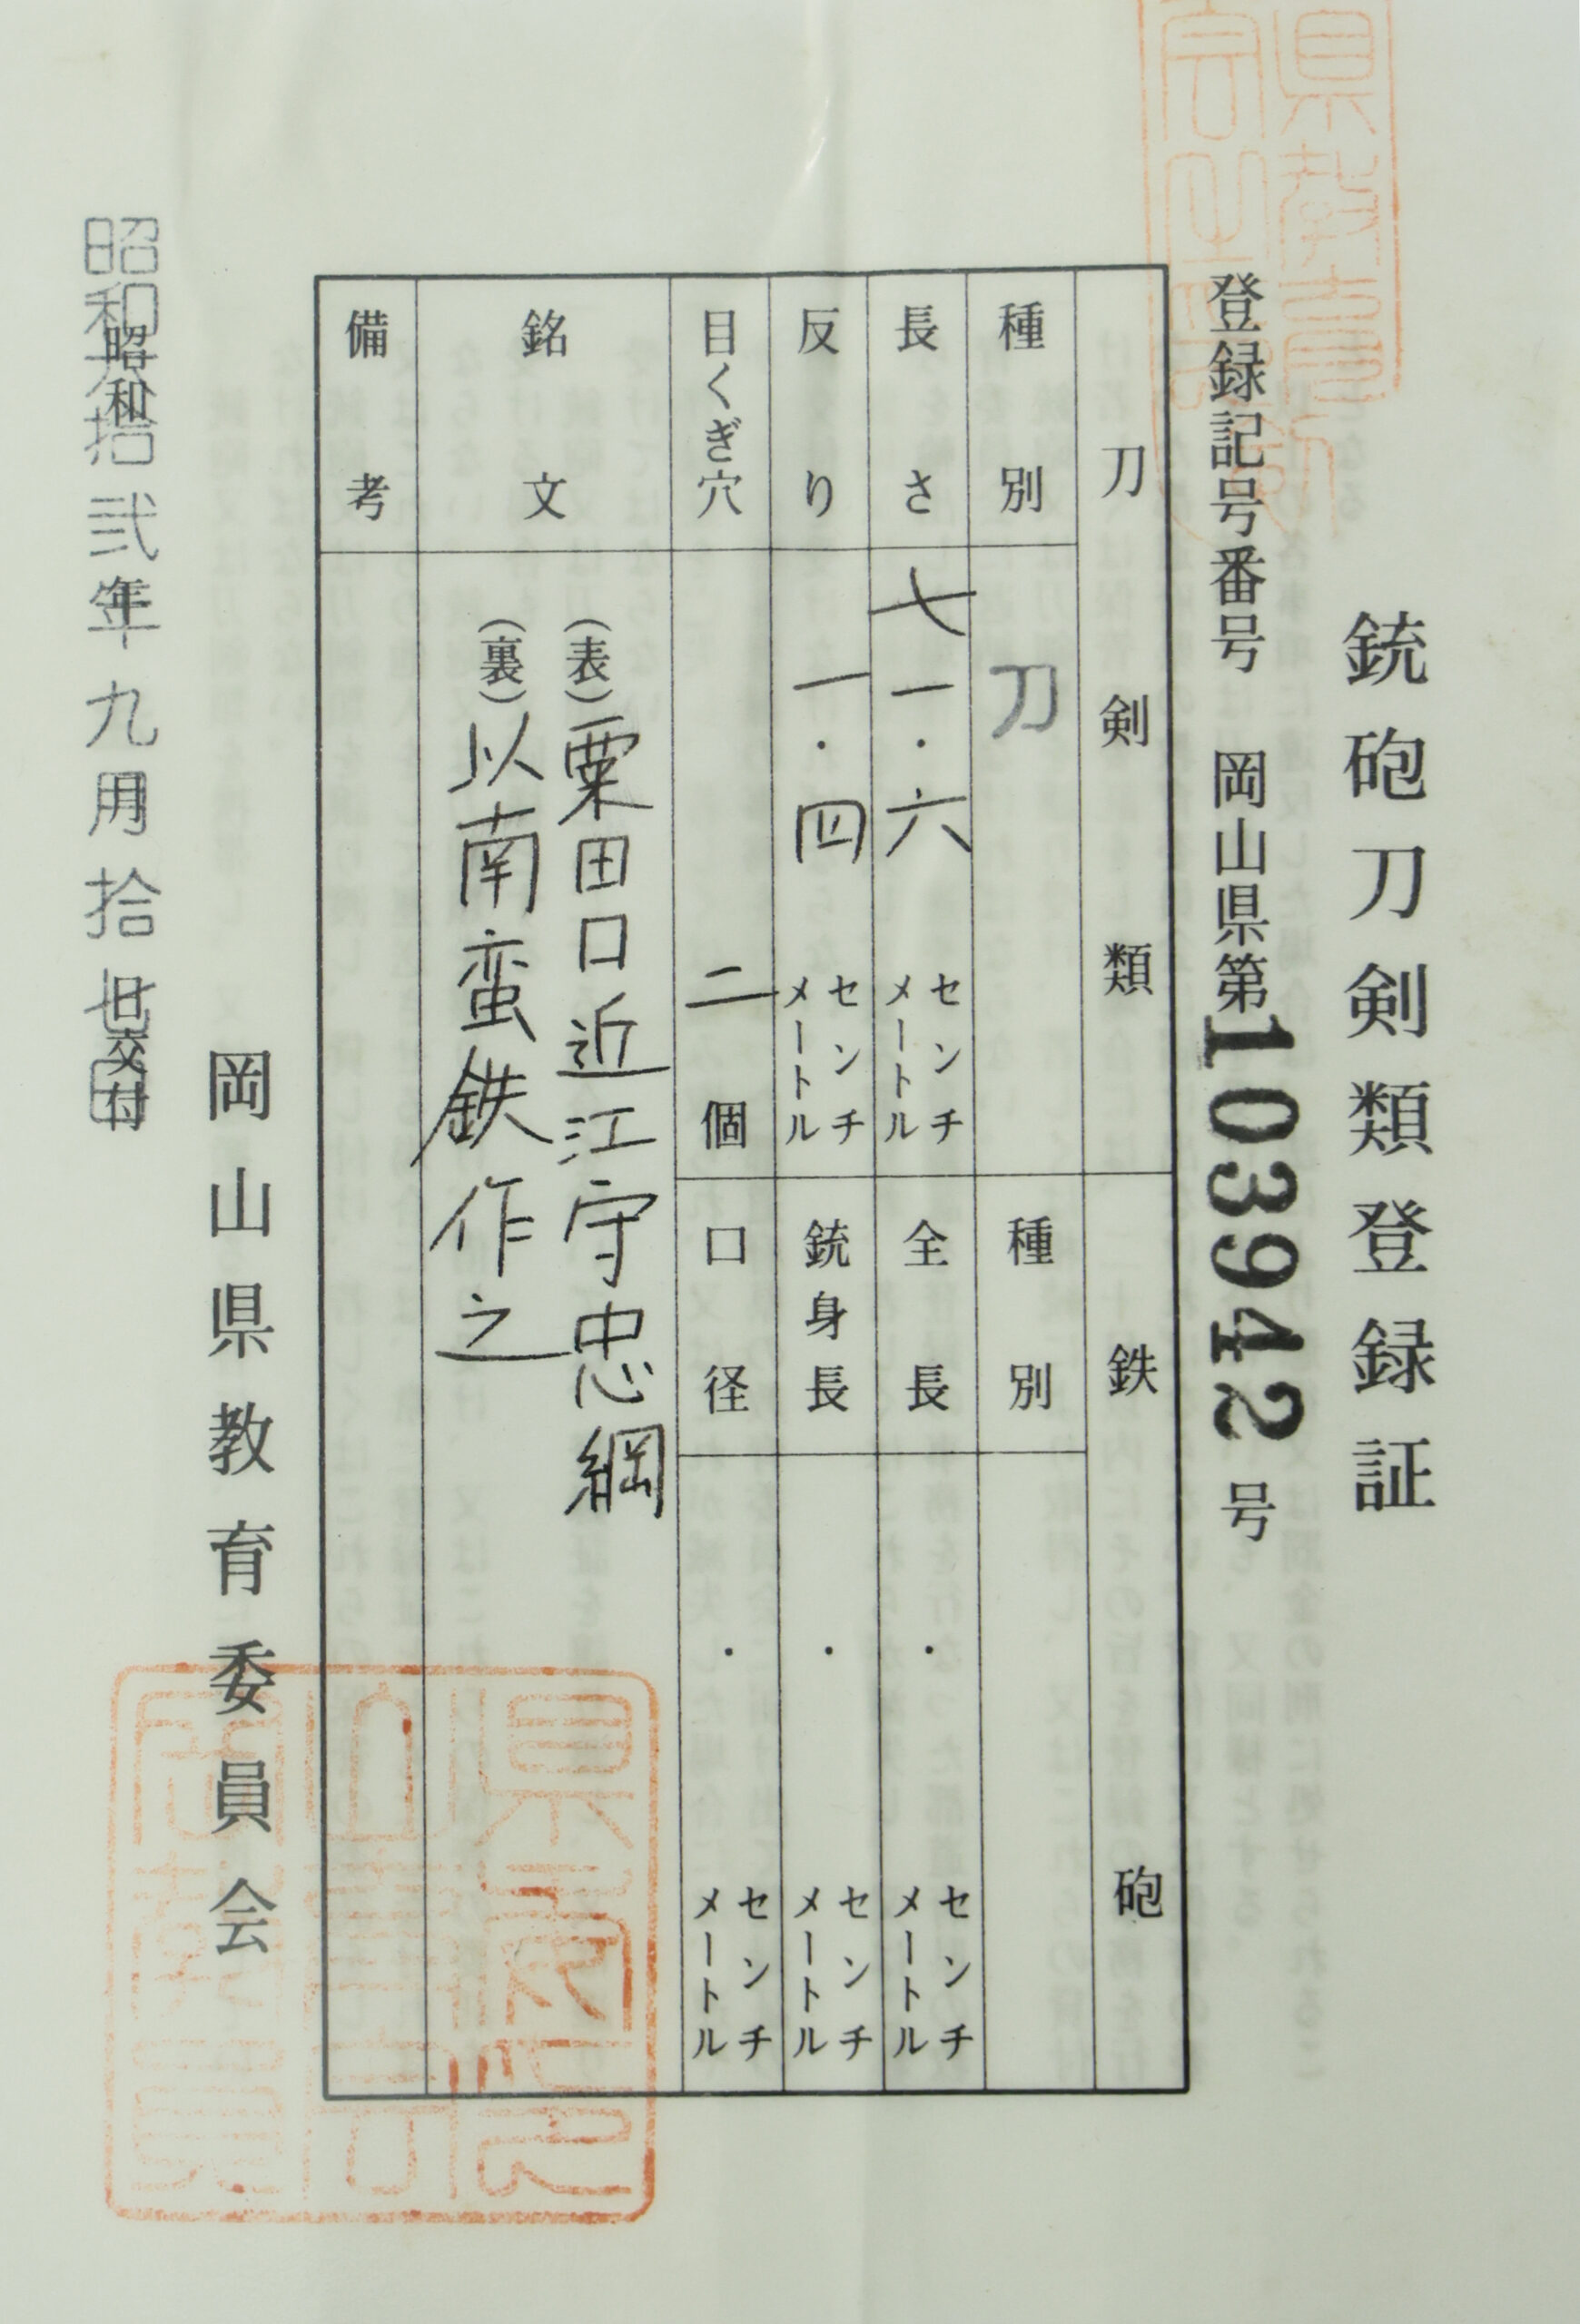 銃砲刀剣類登録証
登録記号番号 岡山県第103942号
刀剣類
鉄砲
種別
刀
種別
長さ
七一・六
センチメートル
全長
・
センチメートル
反り
一・四
センチメートル
銃身長
・
センチメートル
目くぎ穴
二個
口径
・
センチメートル
銘文
(表)粟田口近江守忠綱
(裏)以南蛮鉄作之
備考
岡山県教育委員会
昭和
年九月拾
日交付